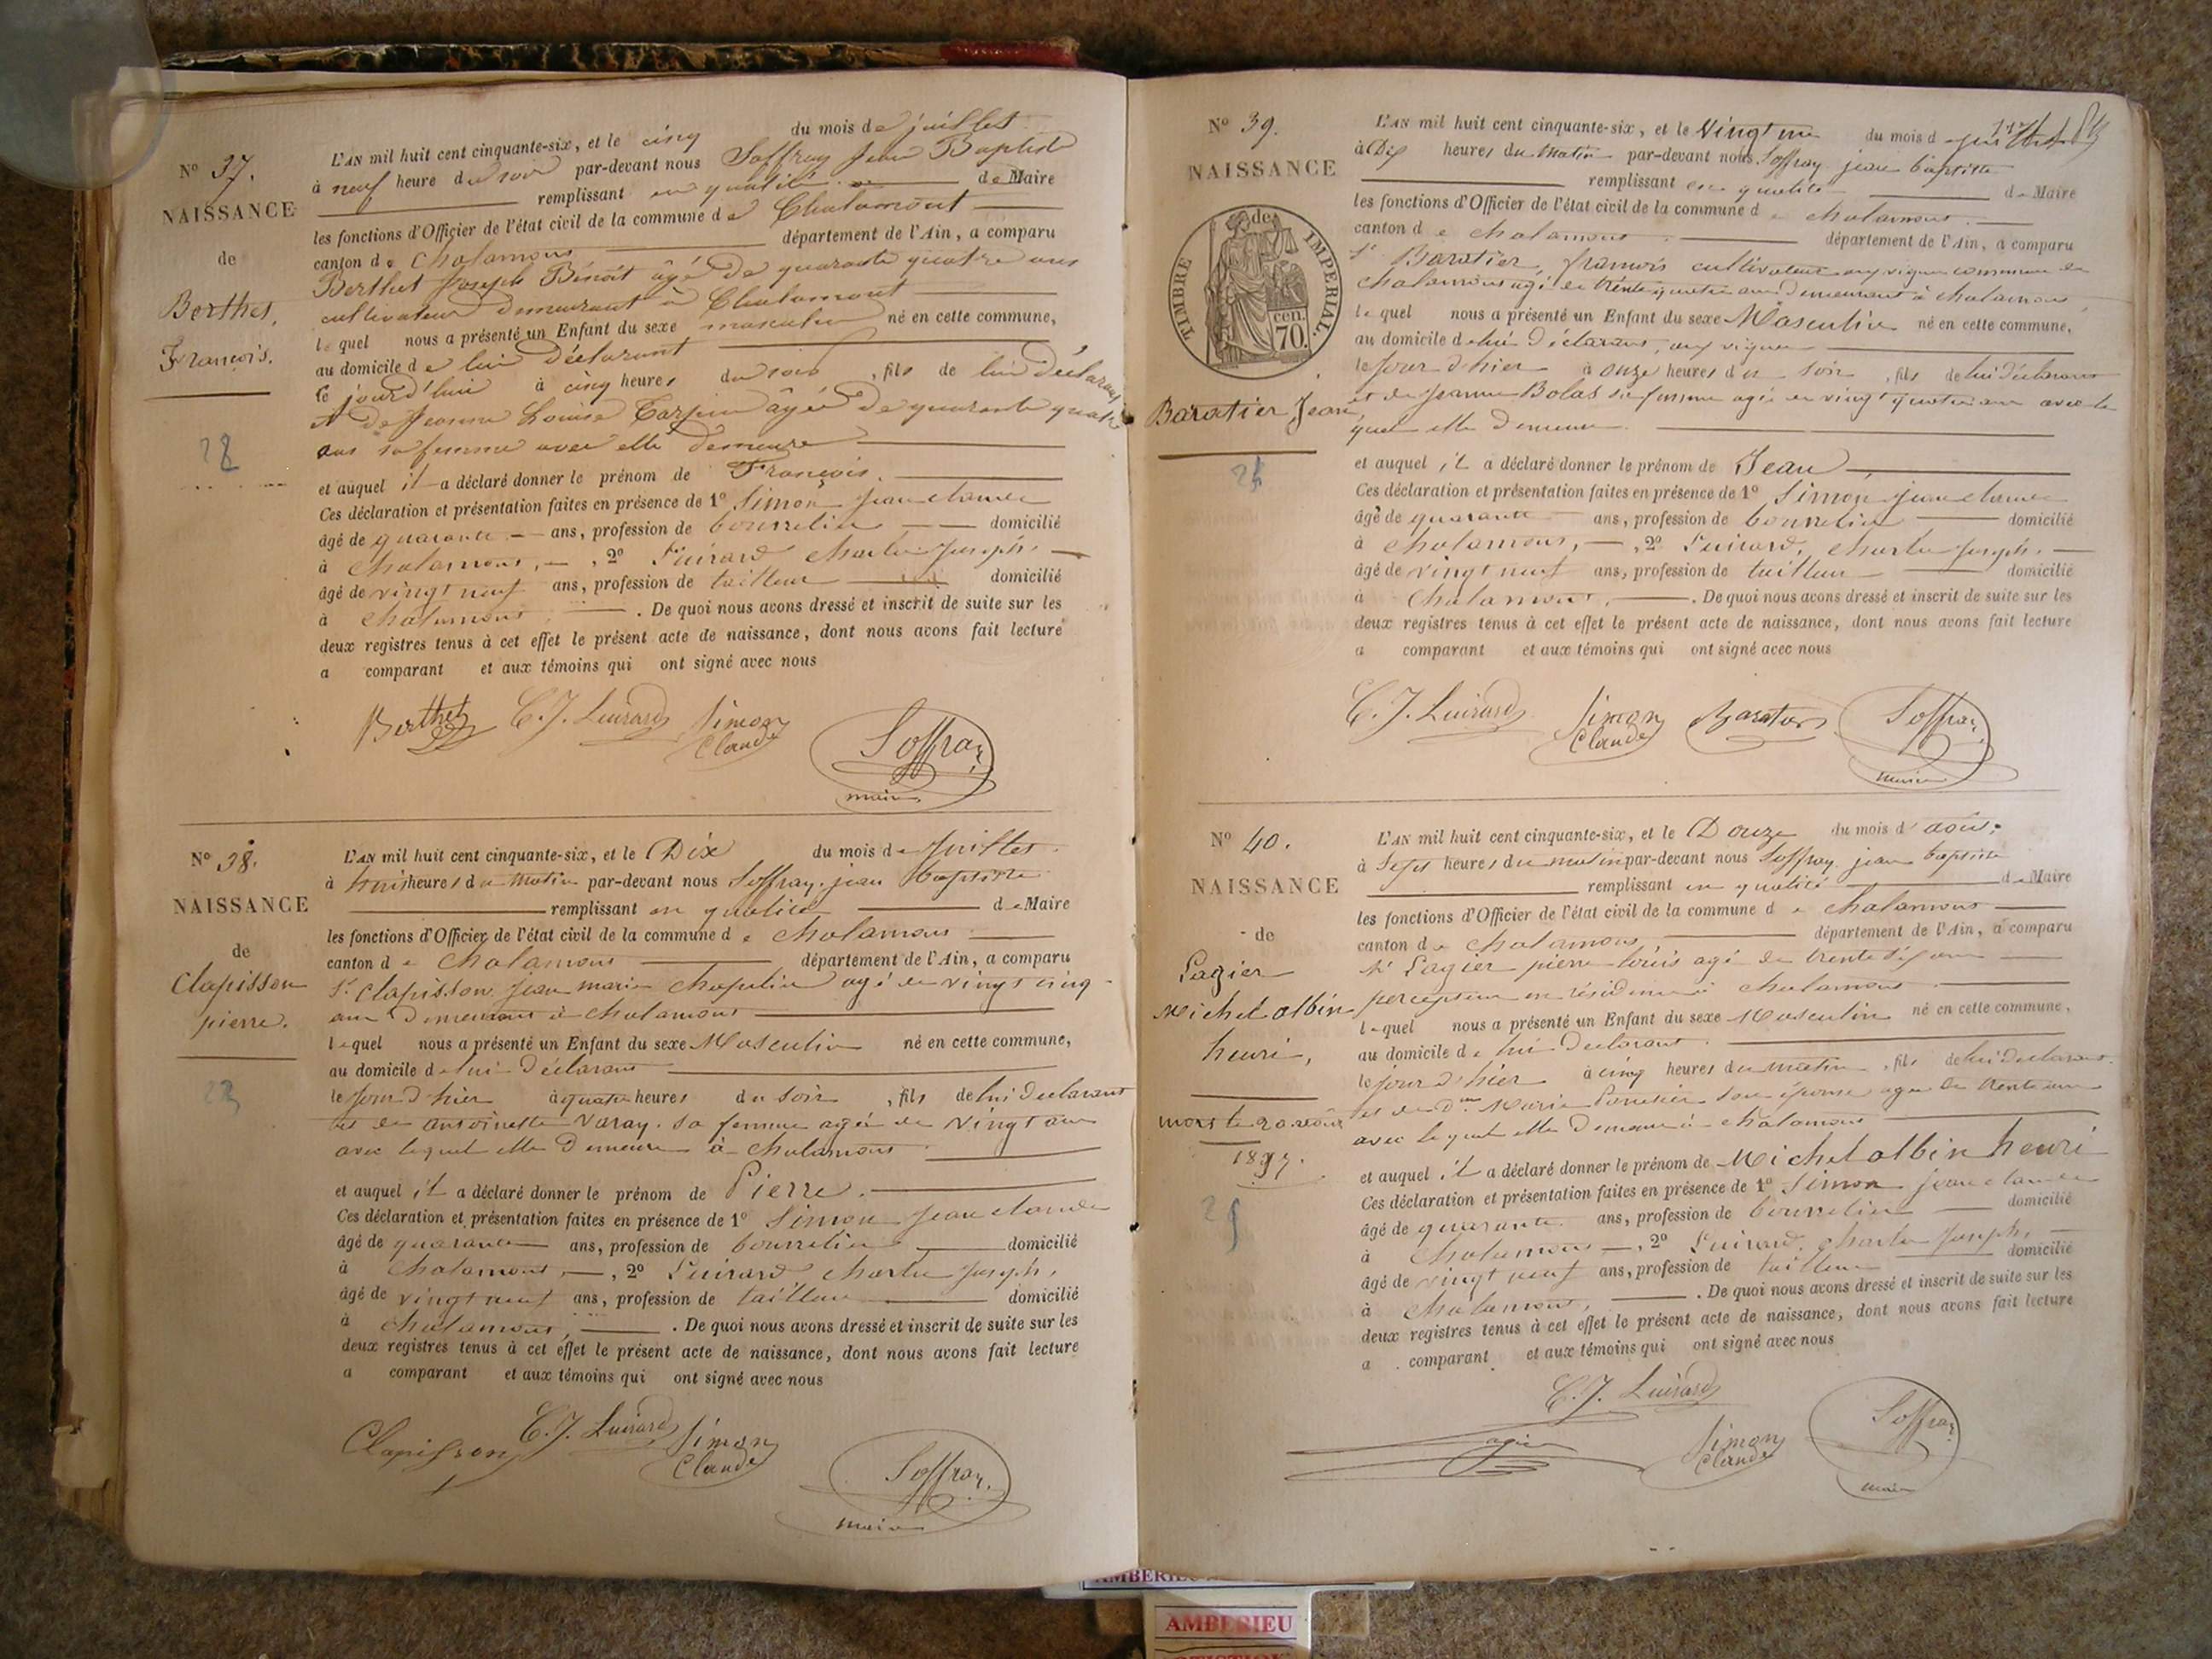 N° 37.
NAISSANCE
de
Berthet,
François.
28
L'AN mil huit cent cinquante-six, et le cinq du mois de juillet
à neuf heure du soir par-devant nous Soffray Jean Baptiste
remplissant en qualité de Maire
les fonctions d'Officier de l'état civil de la commune de Chalamont
canton de Chalamont département de l'Ain, a comparu
Berthet Joseph Bénoit âgé de quarante quatre ans
cultivateur demeurant à Chalamont
lequel nous a présenté un Enfant du sexe masculin né en cette commune,
au domicile de lui déclarant
le jourd'hui à cinq heures du soir, fils de lui déclarant
et de Jeanne Louise âgée de quarante quatre
ans sa femme avec elle demeure
et auquel il a déclaré donner le prénom de François.
Ces déclaration et présentation faites en présence de 1° Simon jean claude
âgé de quarante ans, profession de bourrelier domicilié
à chalamont, 2° Luirard charles joseph,
âgé de vingt neuf ans, profession de tailleur domicilié
à chalamont, . De quoi nous avons dressé et inscrit de suite sur les
deux registres tenus à cet effet le présent acte de naissance, dont nous avons fait lecture
a comparant et aux témoins qui ont signé avec nous
Berthet C. J. Luirard Simon
Claude
Soffray
maire
N° 38.
NAISSANCE
de
Clapisson
pierre.
L'AN mil huit cent cinquante-six, et le Dix du mois de juillet
à trois heures du Matin par-devant nous Soffray, jean baptiste
remplissant en qualité de Maire
les fonctions d'Officier de l'état civil de la commune de chalamont
canton de chalamont département de l'Ain, a comparu
Sr Clapisson jean marie chapelier agé de vingt cinq
ans demeurant à chalamont
lequel nous a présenté un Enfant du sexe Masculin né en cette commune,
au domicile de lui Déclarant
le jour d'hier à quatre heures du soir, fils de lui déclarant
et de antoinette Varay, sa femme agée de vingt ans
avec lequel elle Demeure à chalamont
et auquel il a déclaré donner le prénom de Pierre.
Ces déclaration et présentation faites en présence de 1° Simon jean claude
âgé de quarante ans, profession de bourrelier domicilié
à chalamont, 2° Luirard charles joseph,
âgé de vingt neuf ans, profession de tailleur domicilié
à chalamont, . De quoi nous avons dressé et inscrit de suite sur les
deux registres tenus à cet effet le présent acte de naissance, dont nous avons fait lecture
a comparant et aux témoins qui ont signé avec nous
Clapisson C. J. Luirard Simon
Claude
Soffray
maire
N° 39.
NAISSANCE
de
TIMBRE IMPERIAL.
70. cen.
Baratier Jean,
L'AN mil huit cent cinquante-six, et le Vingt un du mois de juillet
à Dix heures du Matin par-devant nous Soffray jean baptiste
remplissant en qualité de Maire
les fonctions d'Officier de l'état civil de la commune de chalamont
canton de chalamont département de l'Ain, a comparu
Sr Baratier, françois cultivateur aux vignes commune de
chalamont agé de trente quatre ans demeurant à chalamont
lequel nous a présenté un Enfant du sexe Masculin né en cette commune,
au domicile de lui déclarant, aux vignes
le jour d'hier à onze heures du soir, fils de lui déclarant
et de jeanne Bolas sa femme agée de vingt quatre ans avec le
quel elle Demeure
et auquel il a déclaré donner le prénom de Jean
Ces déclaration et présentation faites en présence de 1° Simon jean claude
âgé de quarante ans, profession de bourrelier domicilié
à chalamont, 2° Luirard, charles joseph,
âgé de vingt neuf ans, profession de tailleur domicilié
à chalamont, . De quoi nous avons dressé et inscrit de suite sur les
deux registres tenus à cet effet le présent acte de naissance, dont nous avons fait lecture
a comparant et aux témoins qui ont signé avec nous
C. J. Luirard Simon
Claude
Baratier Soffray
maire
N° 40.
NAISSANCE
de
Lagier
Michel albin
henri,
mort le 20 août
1897.
L'AN mil huit cent cinquante-six, et le Douze du mois d'août
à Sept heures du matin par-devant nous Soffray jean baptiste
remplissant en qualité de Maire
les fonctions d'Officier de l'état civil de la commune de chalamont
canton de chalamont département de l'Ain, a comparu
Sr Lagier pierre louis agé de trente ans
percepteur en résidence à chalamont
lequel nous a présenté un Enfant du sexe Masculin né en cette commune,
au domicile de lui Déclarant
le jour d'hier à cinq heures du matin, fils de lui déclarant
et de dme Marie son épouse agée de trente ans
avec lequel elle Demeure à chalamont
et auquel il a déclaré donner le prénom de Michel albin henri
Ces déclaration et présentation faites en présence de 1° Simon jean claude
âgé de quarante ans, profession de bourrelier domicilié
à chalamont, 2° Luirard, charles joseph,
âgé de vingt neuf ans, profession de tailleur domicilié
à chalamont, . De quoi nous avons dressé et inscrit de suite sur les
deux registres tenus à cet effet le présent acte de naissance, dont nous avons fait lecture
a comparant et aux témoins qui ont signé avec nous
C. J. Luirard
Lagier Simon
Claude
Soffray
maire
AMBERIEU